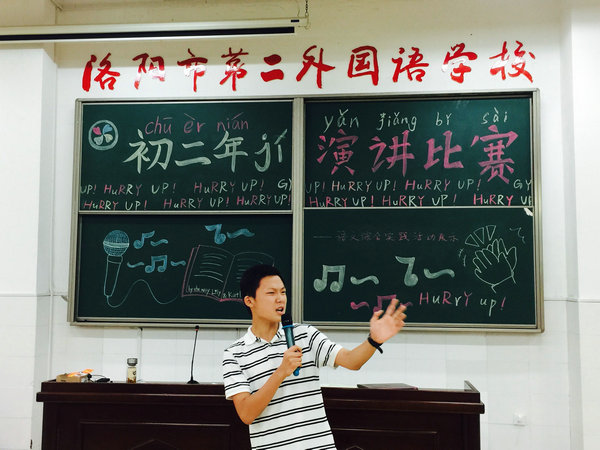 洛阳市第二外国语学校
chū èr nián
初二年
yǎn jiǎng bǐ sài
演讲比赛
UP! HuRRY UP! HuRRY UP! GY
HuRRY UP! HuRRY UP! HuRRY UP!
UP! HuRRY UP! HuRRY UP! GY
HuRRY UP! HuRRY UP! HuRRY UP
语文综合实践活动展示
HuRrY up!